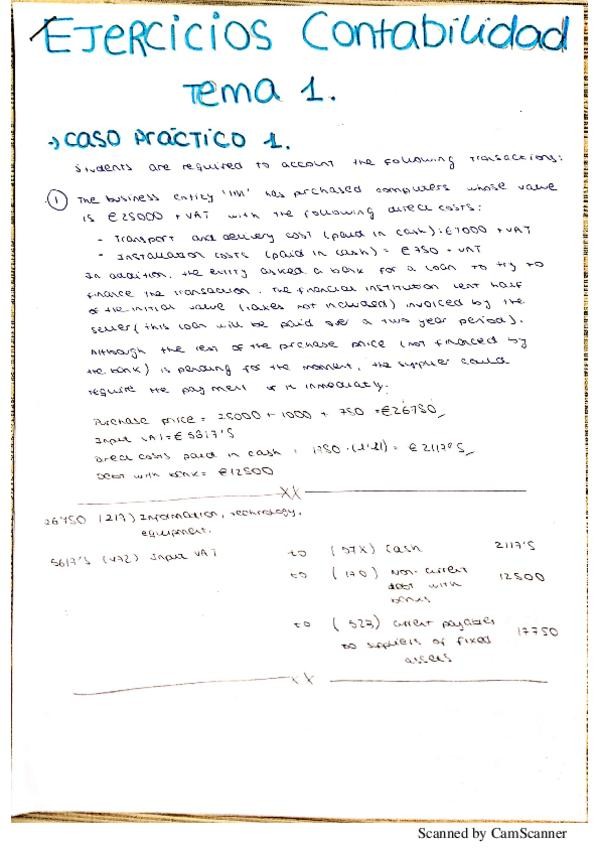 Ejercicios Contabilidad
Tema 1.
→ Caso Práctico 1.
Students are required to account the following transactions:
① The business entity has prchased computers whose value
is €25000 + VAT with the following direct costs:
- Transport and delivery cost (paid in cash): €1000 + VAT
- Installation costs (paid in cash) = €750 + VAT
In addition, the entity asked a bank for a loan to try to
finance the transaction. The financial institution lent half
of the initial value (taxes not included) invoiced by the
seller (this loan will be paid over a two year period).
Although the rest of the prchase price (not financed by
the bank) is pending for the moment, the supplier could
require the payment of it inmediatly.
Purchase price = 25000 + 1000 + 750 = €26750
Input VAT = € 5617'5
Direct costs paid in cash: 1750 · (1'21) = € 2117'5
Debt with bank = €12500
XX
26750 (217) Information, technology,
equipment.
5617'5 (472) Input VAT to (57X) Cash 2117'5
to (170) Non-current 12500
debt with
banks
to (523) current payables 17750
to suppliers of fixed
assets
XX
Scanned by CamScanner